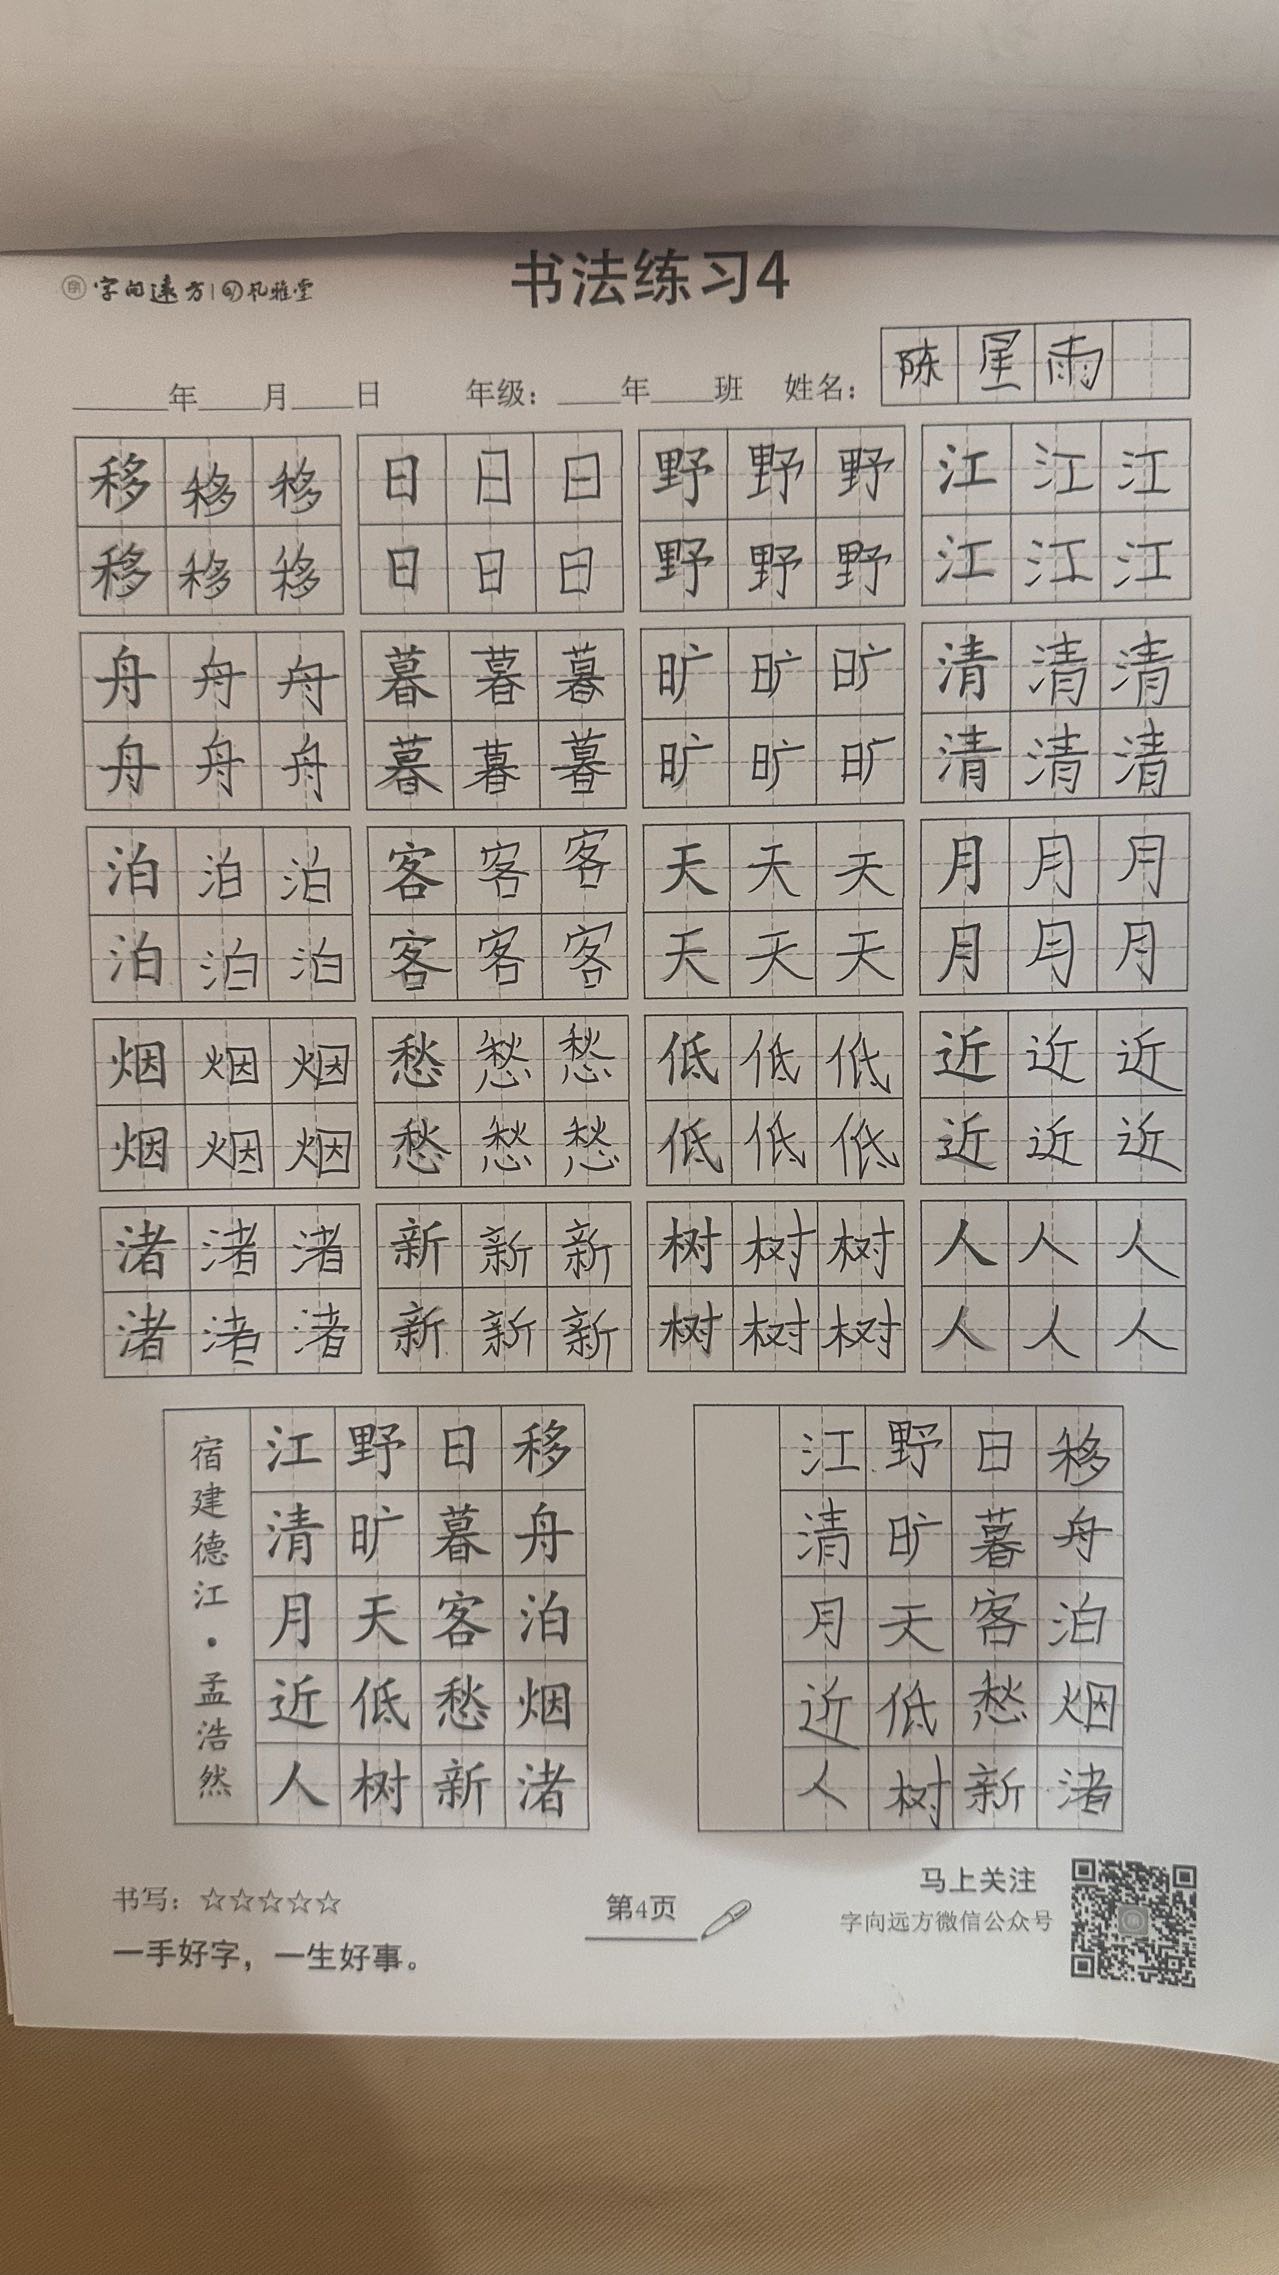 书法练习4
字向远方 礼雅堂
年 月 日 年级: 年 班 姓名: 陈星雨
移移移 日日日 野野野 江江江
移移移 日日日 野野野 江江江
舟舟舟 暮暮暮 旷旷旷 清清清
舟舟舟 暮暮暮 旷旷旷 清清清
泊泊泊 客客客 天天天 月月月
泊泊泊 客客客 天天天 月月月
烟烟烟 愁愁愁 低低低 近近近
烟烟烟 愁愁愁 低低低 近近近
渚渚渚 新新新 树树树 人人人
渚渚渚 新新新 树树树 人人人
宿建德江·孟浩然
移舟泊烟渚
日暮客愁新
野旷天低树
江清月近人
移舟泊烟渚
日暮客愁新
野旷天低树
江清月近人
书写: ☆☆☆☆☆
一手好字，一生好事。
第4页
马上关注
字向远方微信公众号